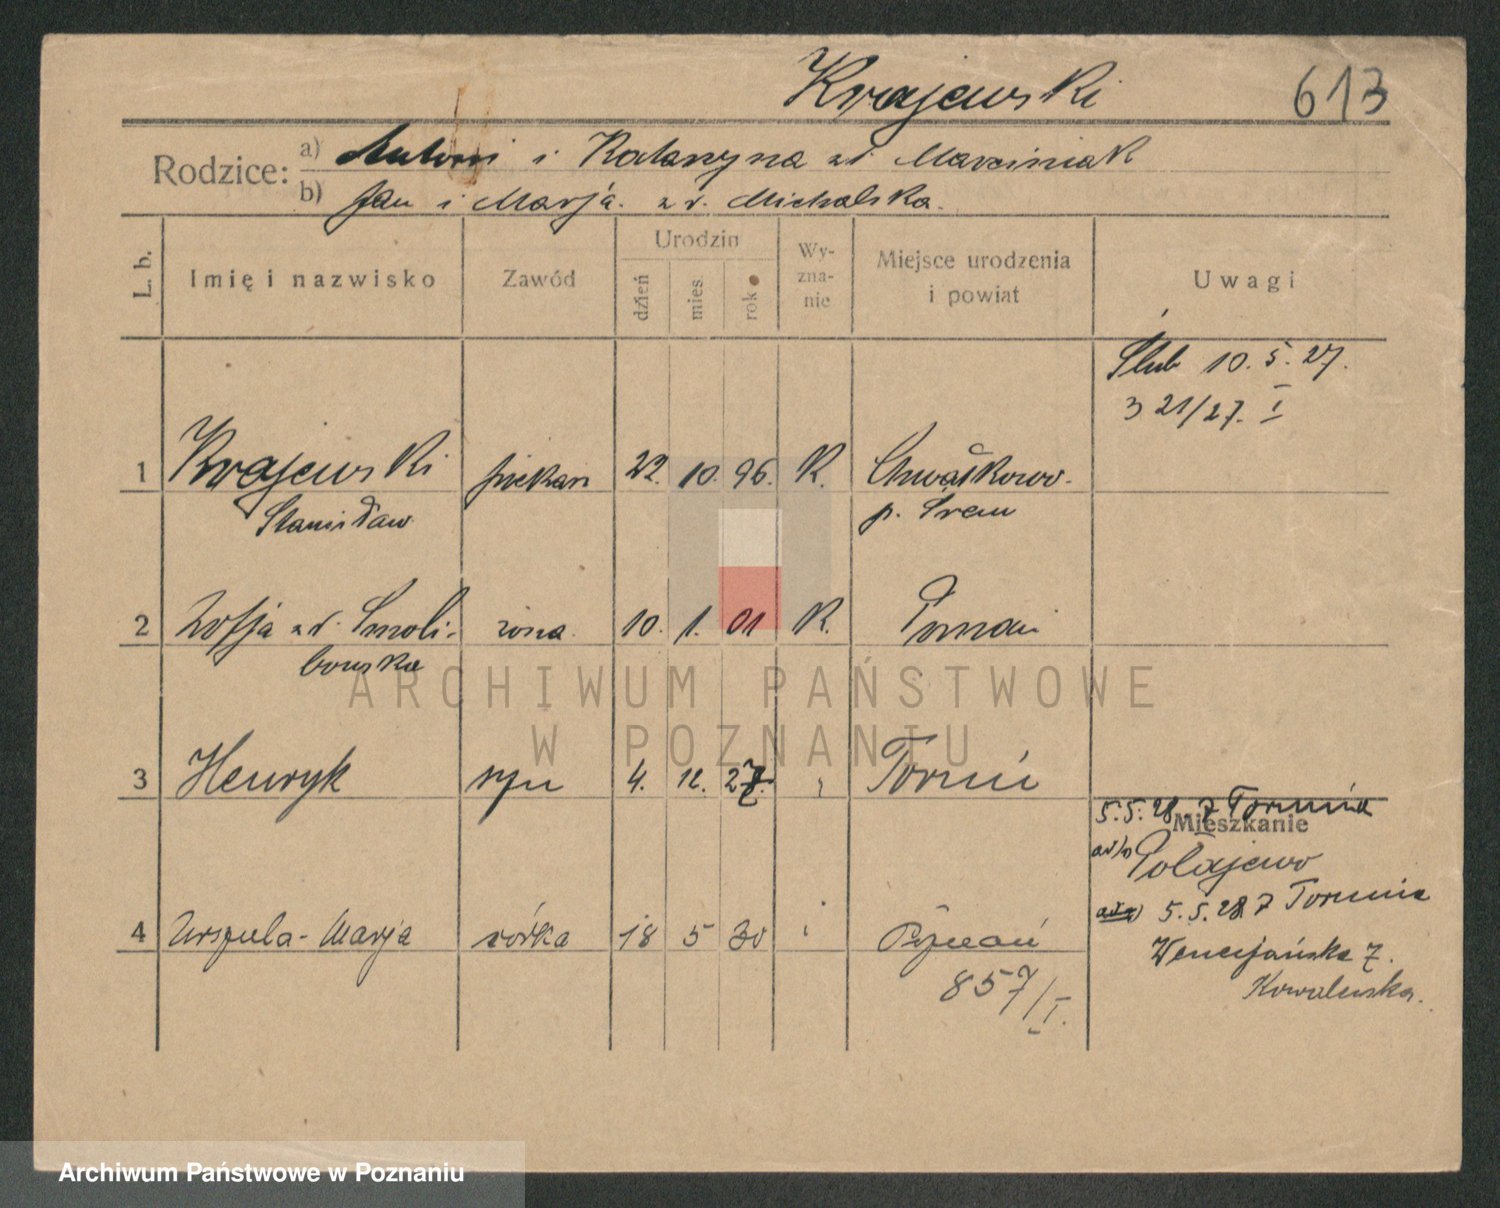 Krajewski 613
Rodzice: a) Antoni i Katarzyna z d. Marciniak
b) Jan i Marja z d. Michalska.
L. b. Imię i nazwisko Zawód Urodzin dzień mies. rok Wyznanie Miejsce urodzenia i powiat Uwagi
Ślub 10. 5. 27.
3 21/27. I
1 Krajewski piekarz 22. 10. 96. K. Chwałkowo
Stanisław p. Śrem
2 Zofja z d. Smoli-
bowska żona 10. 1. 01 K. Poznań
3 Henryk syn 4. 12. 27. Toruń
5.5.28 z Torunia
Mieszkanie
Połajewo
4 Urszula-Marja córka 18 5 30 Poznań
5.5.28 z Torunia
857/I.
Wenecjańska 7.
Kowalewska.
ARCHIWUM PAŃSTWOWE
W POZNANIU
Archiwum Państwowe w Poznaniu